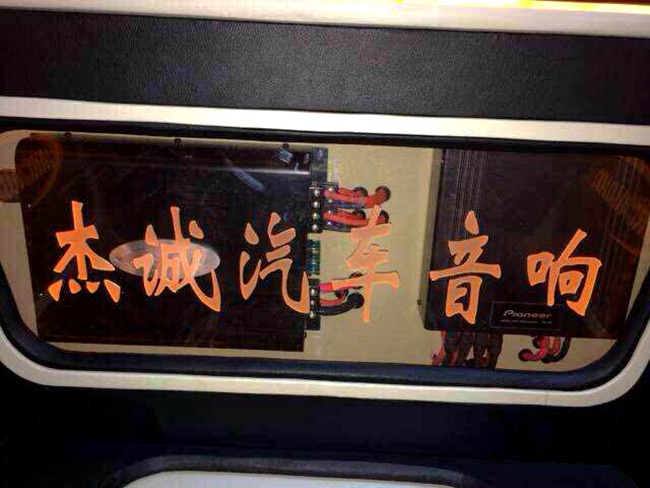 杰诚汽车音响
Pioneer